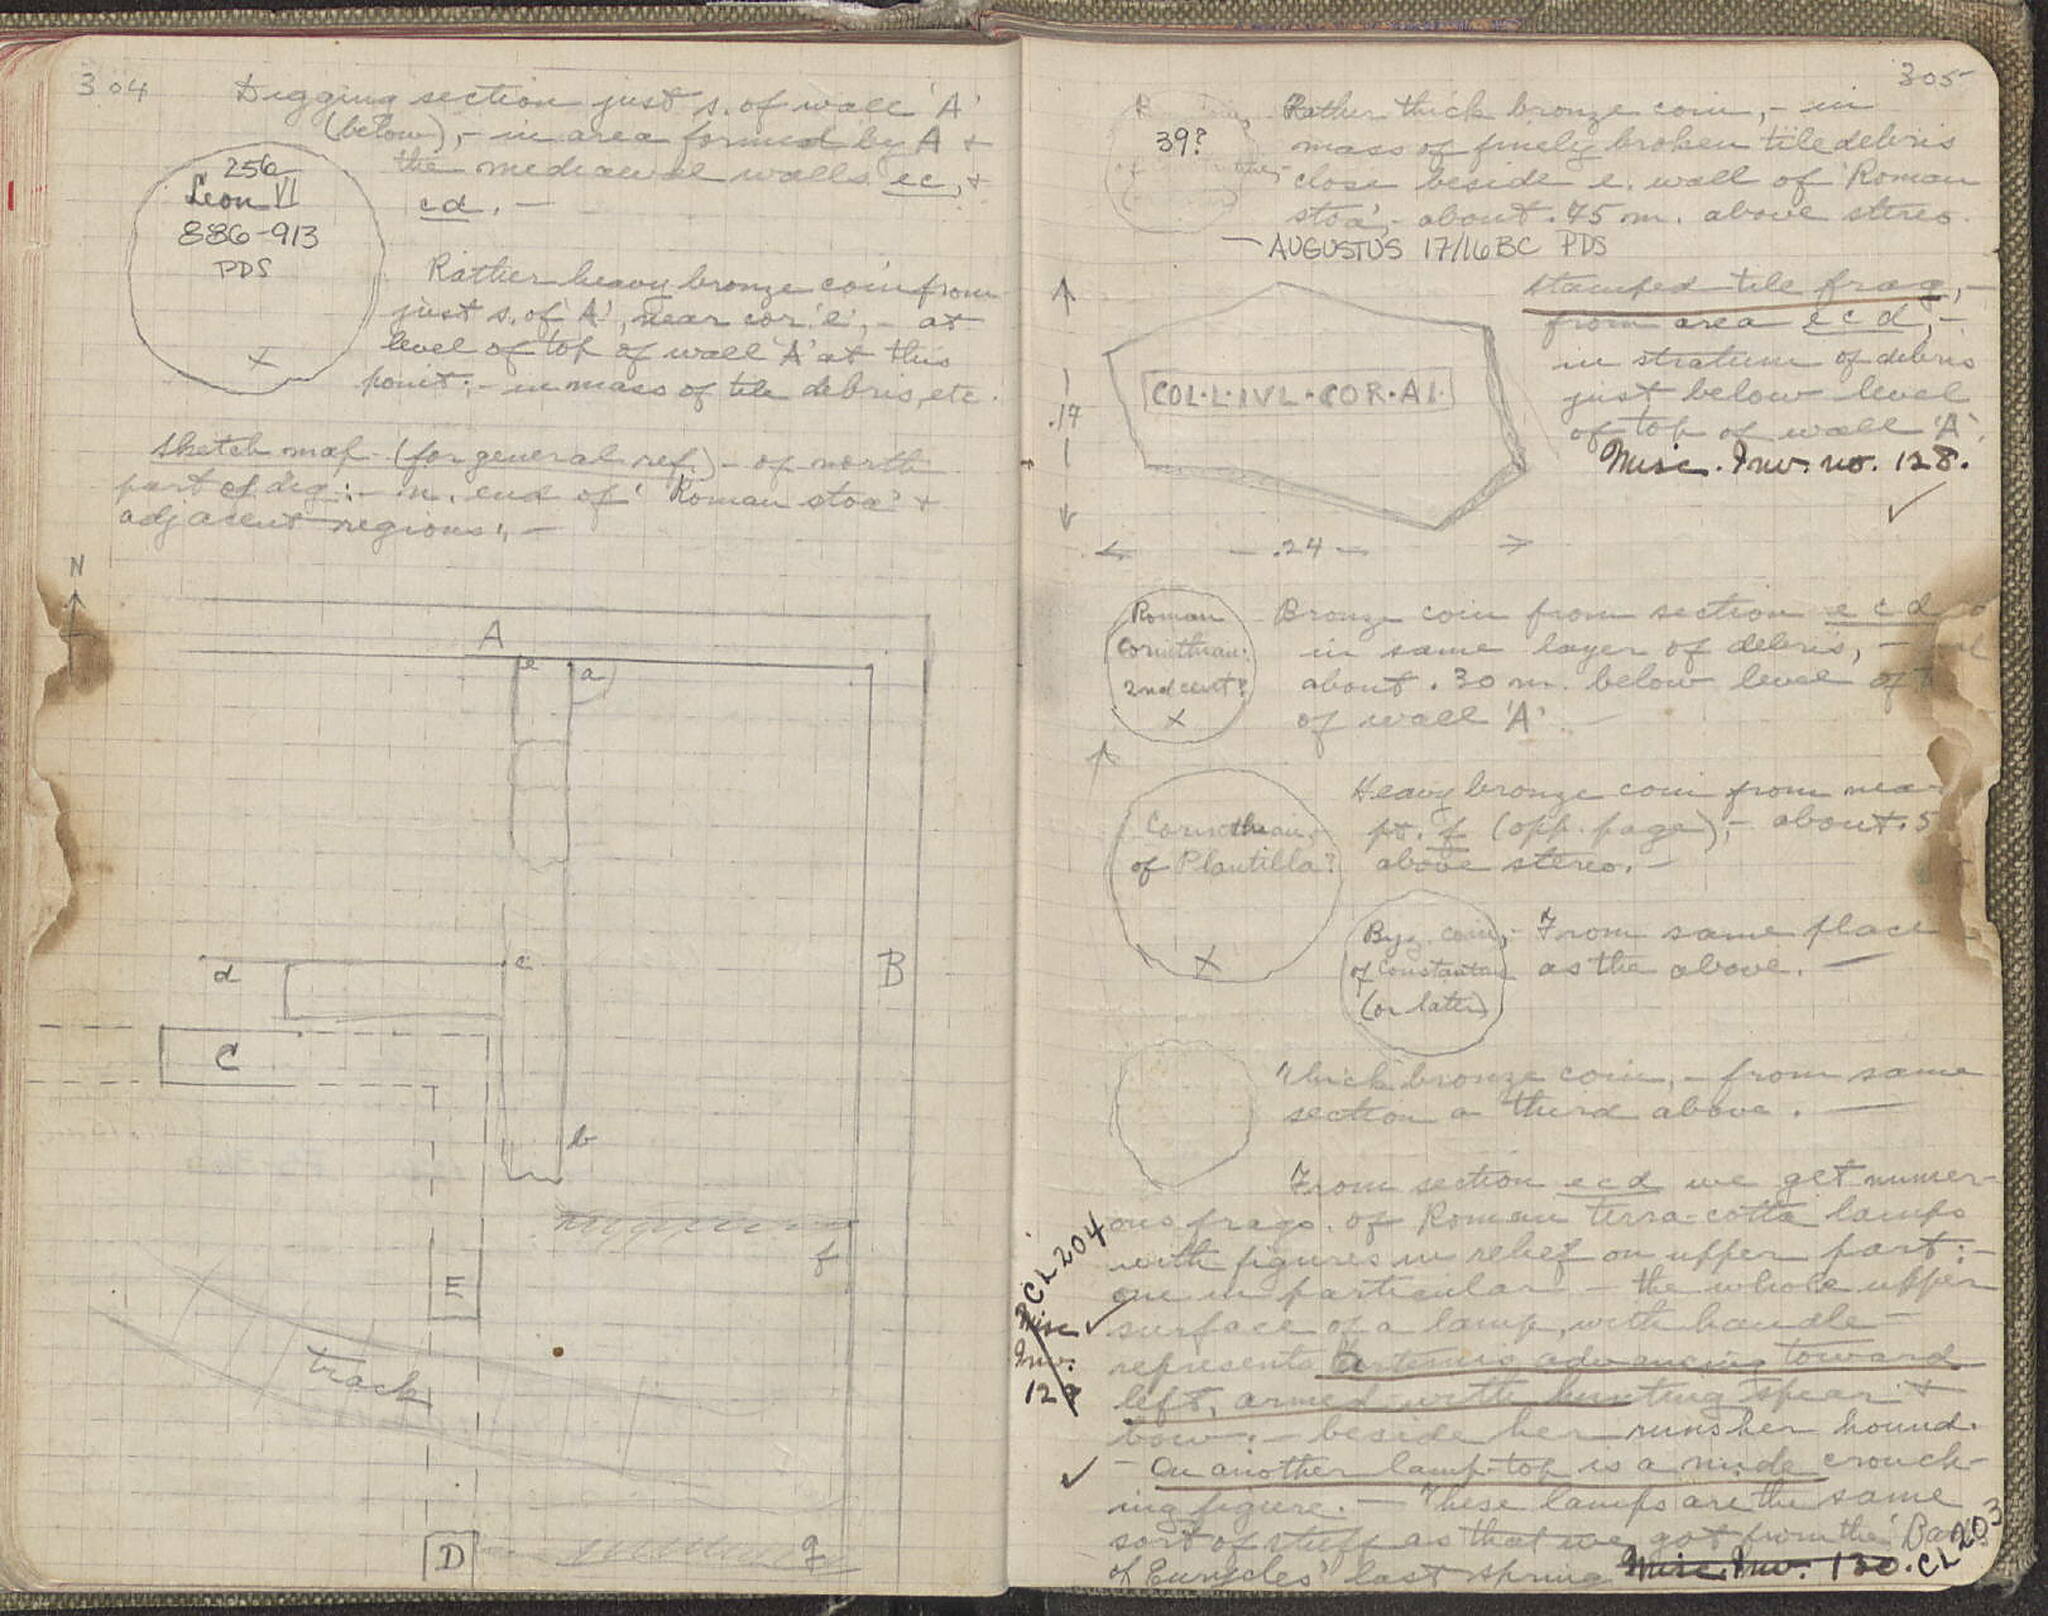 304
Digging section just s. of wall 'A'
(below), - in area formed by A +
the mediaeval walls ec, +
cd. -
256
Leon VI
886-913
PDS
X
Rather heavy bronze coin from
just s. of 'A', near cor. 'e', - at
level of top of wall 'A' at this
point; - in mass of tile debris, etc.
Sketch map - (for general ref.) - of north
part of dig: - n. end of 'Roman stoa' +
adjacent regions: -
N
A
e
a
d
c
B
C
b
f
E
track
D
g
305
39?
Rather thick bronze coin, - in
mass of finely broken tile debris
close beside e. wall of 'Roman
stoa', - about .75 m. above stereo.
- AUGUSTUS 17/16 BC PDS
stamped tile frag, -
from area ecd, -
in stratum of debris
just below level
of top of wall 'A'.
Misc. Inv. no. 128.
COL·L·IVL·COR·AI·
.17
.24
Roman
Corinthian:
2nd cent?
X
Bronze coin from section ecd
in same layer of debris, -
about .30 m. below level of
of wall 'A'. -
Corinthian,
of Plautilla?
X
Heavy bronze coin from near
pt. f (opp. page), - about .5
above stereo. -
Byz. coin, -
of Constantine
(or later)
From same place
as the above. -
Thick bronze coin, - from same
section as third above. -
From section ecd we get numer-
ous frags. of Roman terra-cotta lamps
with figures in relief on upper part: -
one in particular - the whole upper
surface of a lamp, with handle -
represents Artemis advancing toward
left, armed with hunting spear +
bow: - beside her runs her hound.
CL 204
Misc
Inv.
129
- On another lamp-top is a nude crouch-
ing figure. - These lamps are the same
sort of stuff as that we got from the 'Baths
of Eurycles' last spring Misc. Inv. 130. CL 203